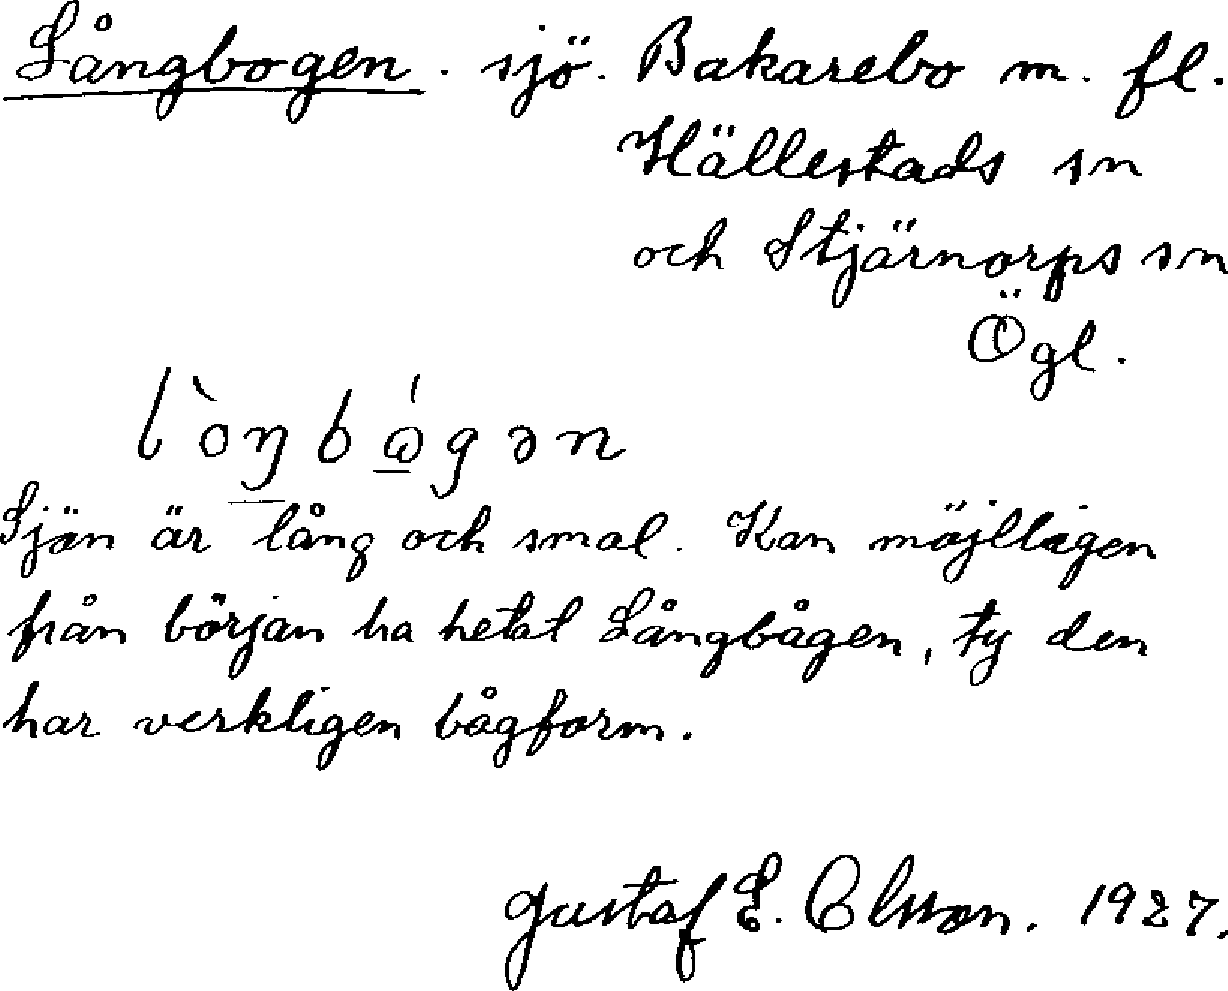 Långbogen. sjö. Bakarebo m. fl.
Hällestads sn
och Stjärnorps sn
Ögl.
lòŋbɷ́gən
Sjön är lång och smal. Kan möjlligen
från början ha hetat Långbågen, ty den
har verkligen bågform.
Gustaf E. Olsson. 1927.